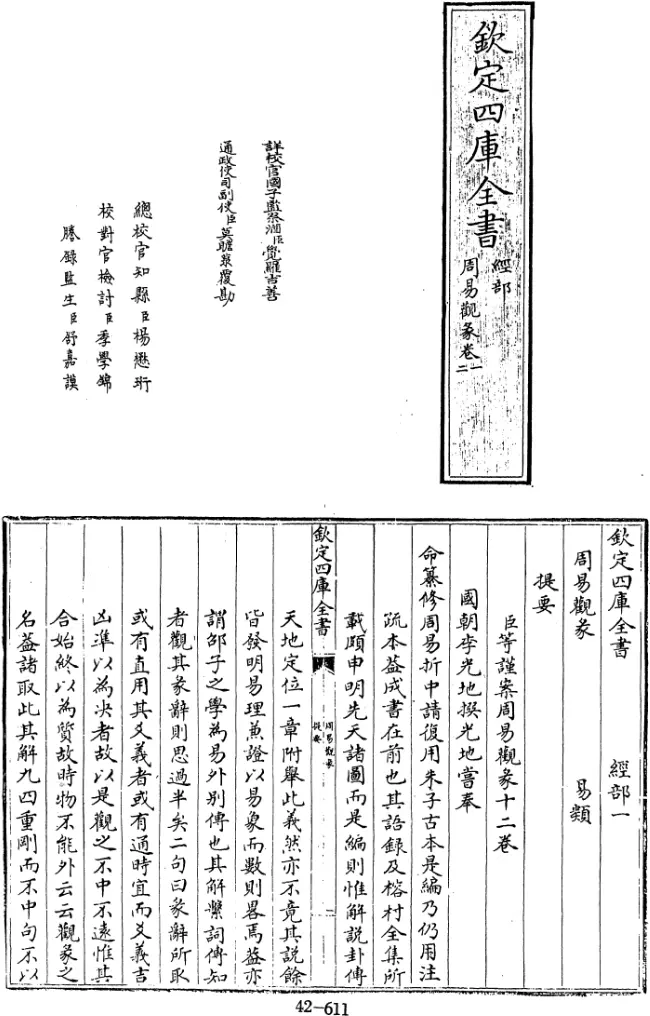 欽定四庫全書
經部
周易觀彖卷一
二
詳校官國子監祭酒臣覺羅吉善
通政使司副使臣莫瞻菉覆勘
總校官知縣臣楊懋珩
校對官檢討臣季學錦
謄錄監生臣舒嘉謨
欽定四庫全書 經部一
周易觀彖 易類
提要
臣等謹案周易觀彖十二卷
國朝李光地撰光地嘗奉
命纂修周易折中請復用朱子古本是編乃仍用注
疏本葢成書在前也其語錄及榕村全集所
載頗申明先天諸圖而是編則惟解說卦傳
欽定四庫全書
周易觀彖
提要
天地定位一章附舉此義然亦不竟其說餘
皆發明易理兼證以易象而數則畧焉葢亦
謂邵子之學為易外別傳也其解繫詞傳知
者觀其彖辭則思過半矣二句曰彖辭所取
或有直用其爻義者或有適時宜而爻義吉
凶準以為決者故以是觀之不中不遠惟其
合始終以為質故時物不能外云云觀彖之
名葢諸取此其解九四重剛而不中句不以
42-611